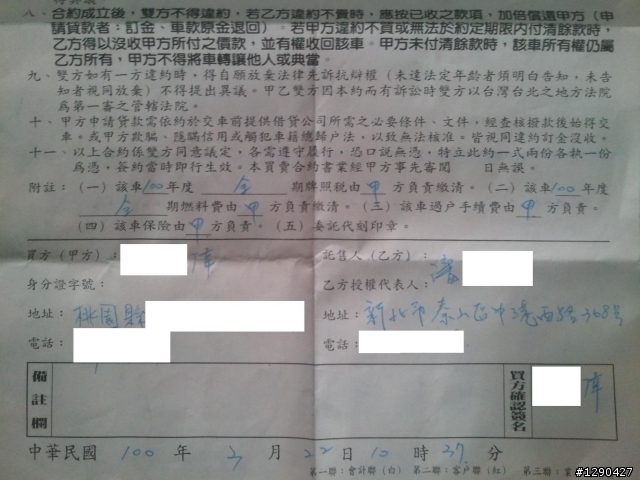 八、合約成立後，雙方不得違約，若乙方違約不賣時，應按已收之款項，加倍償還甲方（申
請貸款者：訂金、車款原金退回）。若甲方違約不買或無法於約定期限內付清餘款時，
乙方得以沒收甲方所付之價款，並有權收回該車。甲方未付清餘款時，該車所有權仍屬
乙方所有，甲方不得將車轉讓他人或典當。
九、雙方如有一方違約時，得自願放棄法律先訴抗辯權（未達法定年齡者須明白告知，未告
知者視同放棄）不得提出異議。甲乙雙方因本約而有訴訟時雙方以台灣台北之地方法院
為第一審之管轄法院。
十、甲方申請貸款需依約於交車前提供借貸公司所需之必要條件、文件，經查核撥款後始得交
車。或甲方欺騙、隱瞞信用或觸犯車籍總歸戶法，以致無法核准。皆視同違約訂金沒收。
十一、以上合約係雙方同意議定，各需遵守履行，恐口說無憑，特立此約一式兩份各執一份
為憑，簽約當時即行生效。本買賣合約書業經甲方事先審閱　日無誤。
附註：（一）該車100年度　全　期牌照稅由甲方負責繳清。（二）該車100年度
全　期燃料費由甲方負責繳清。（三）該車過戶手續費由甲方負責。
（四）該車保險由甲方負責。（五）委託代刻印章。
買方（甲方）：
託售人（乙方）：
身分證字號：
乙方授權代表人：
地址：桃園縣
地址：新北市泰山區中港西路368號
電話：
電話：
備註欄
買方確認簽名
中華民國 100 年 3 月 22 日 10 時 37 分
第一聯：會計聯（白）　第二聯：客戶聯（紅）　第三聯：業
#1290427